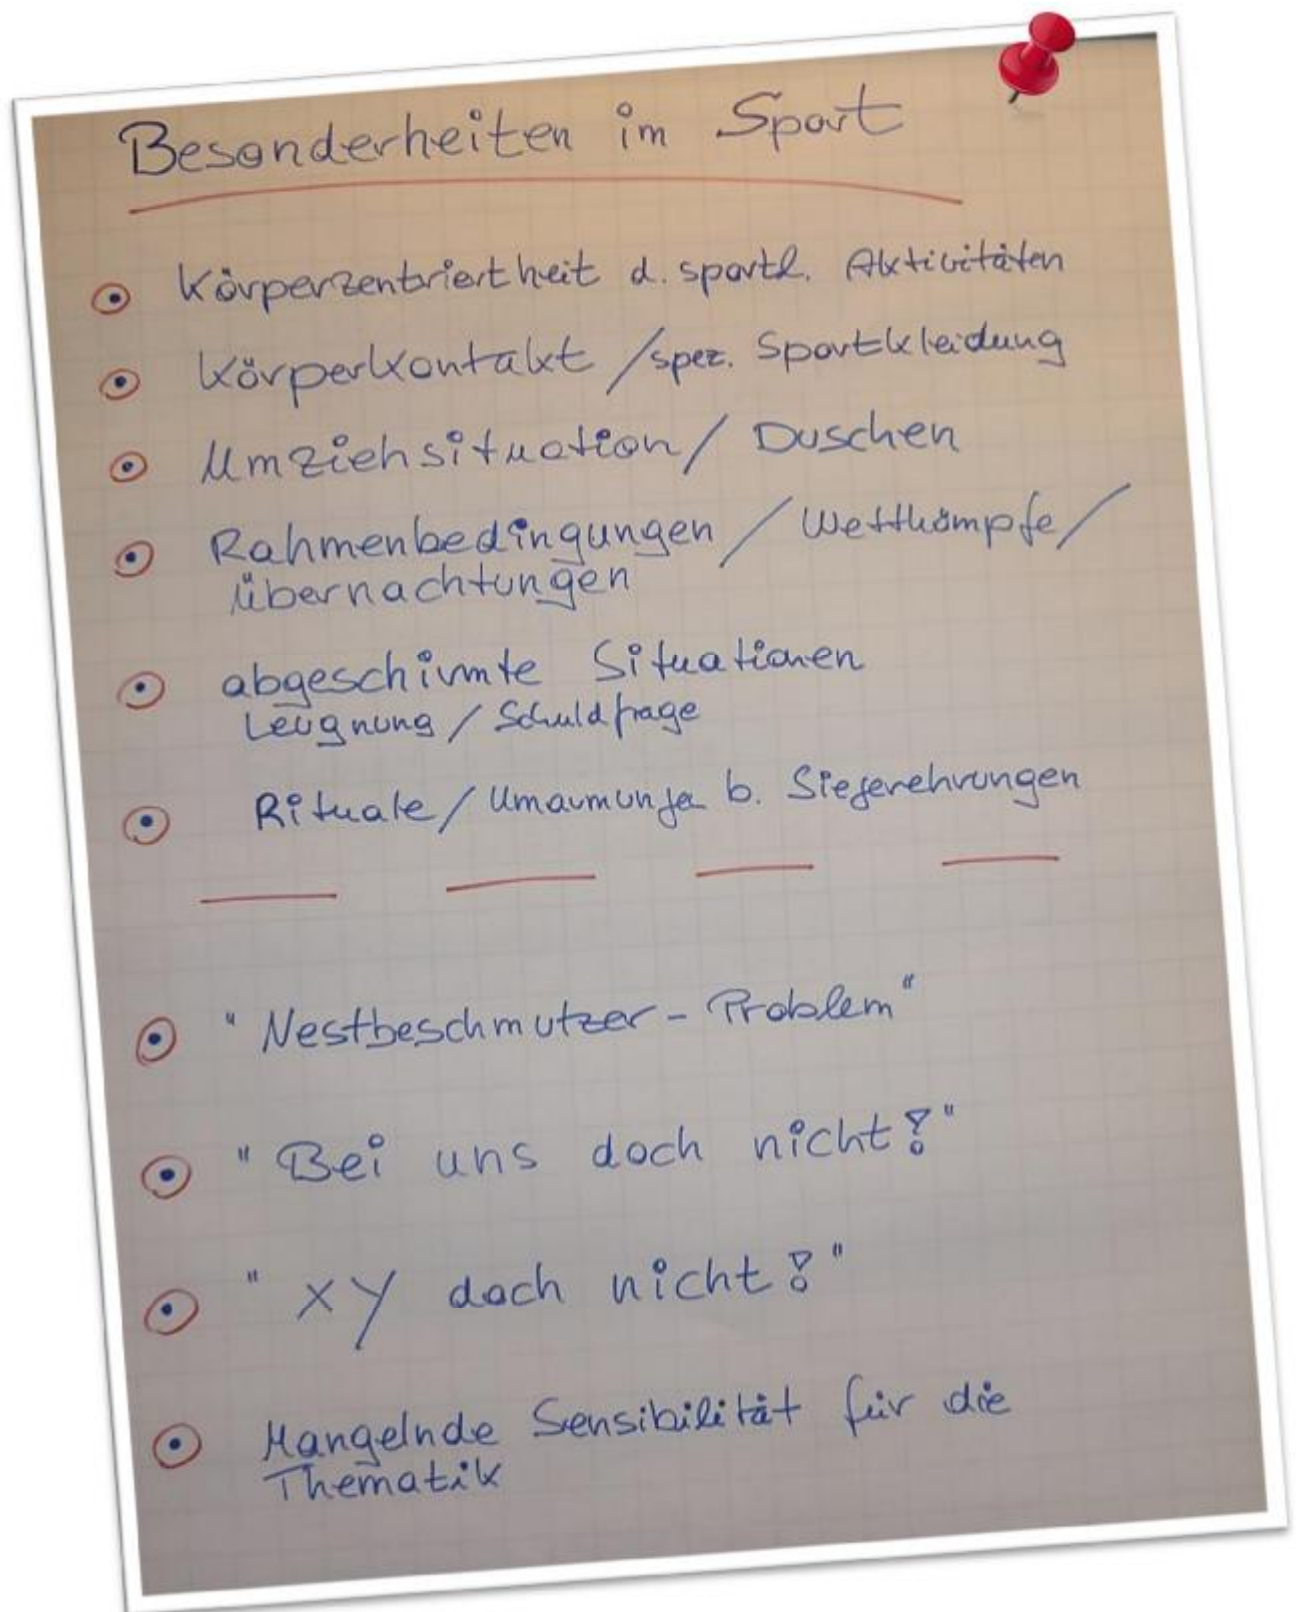 Besonderheiten im Sport
Körperzentriertheit d. sportl. Aktivitäten
Körperkontakt / spez. Sportkleidung
Umziehsituation / Duschen
Rahmenbedingungen / Wettkämpfe /
Übernachtungen
abgeschirmte Situationen
Leugnung / Schuldfrage
Rituale / Umarmungen b. Siegerehrungen
"Nestbeschmutzer - Problem"
"Bei uns doch nicht!"
"XY doch nicht!"
Mangelnde Sensibilität für die
Thematik